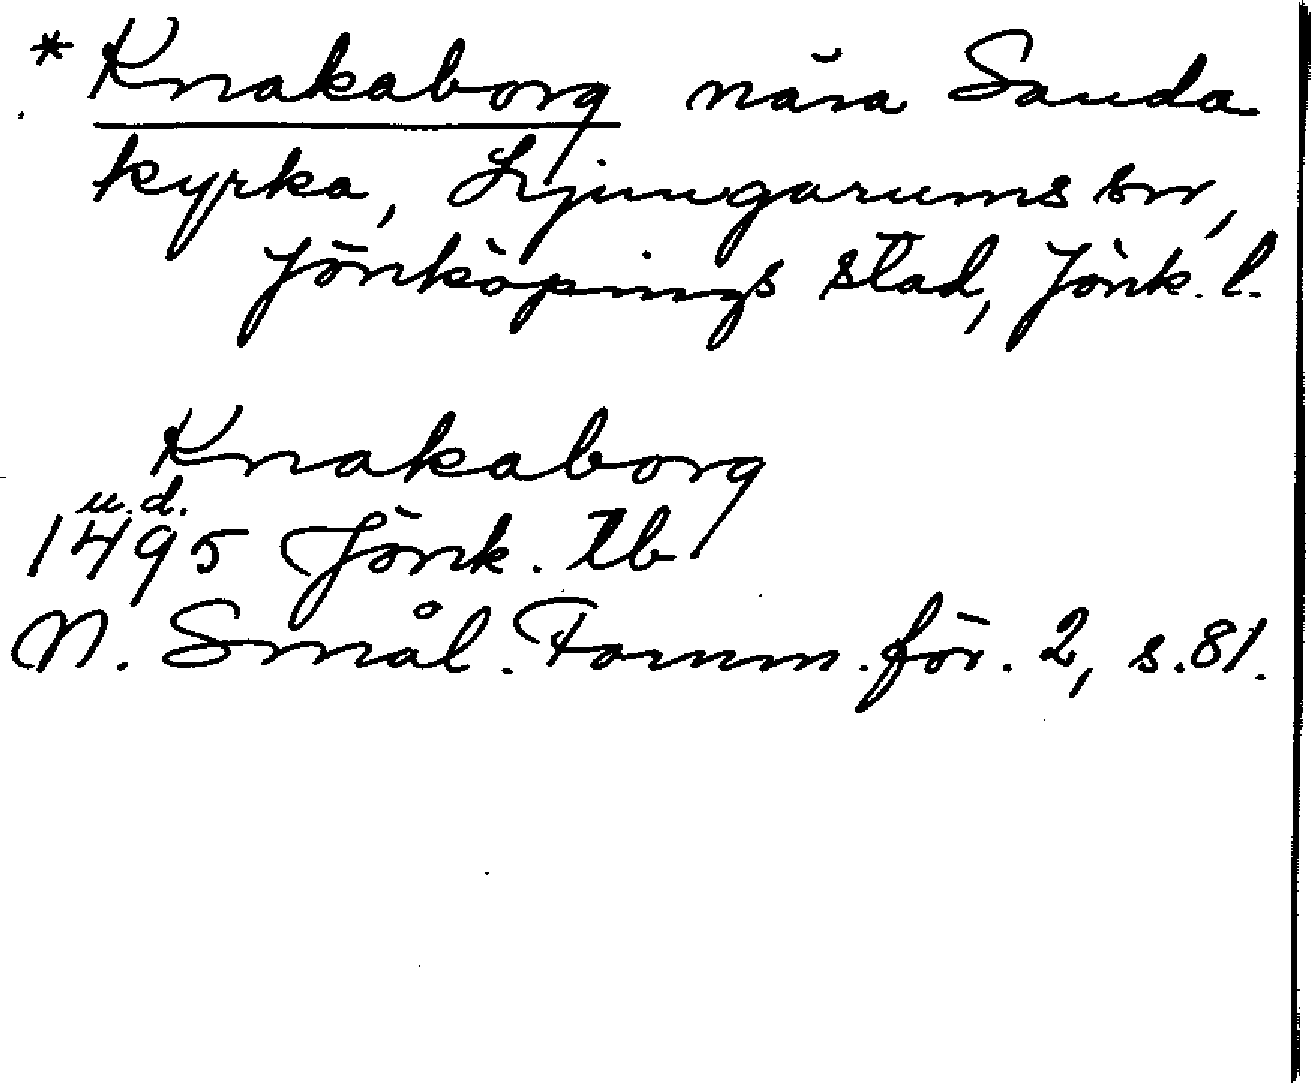 * Knakaborg nära Sanda
kyrka, Ljungarums sn,
Jönköpings stad, Jönk. l.
Knakaborg
u.d.
1495 Jönk. tb
N. Smål. Fornm. för. 2, s. 81.